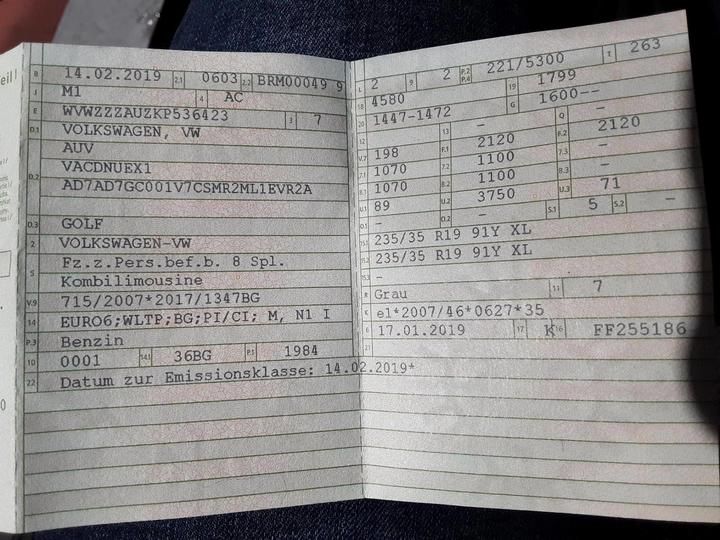 eil I
B 14.02.2019 2.1 0603 2.2 BRM00049 9
J M1 4 AC
E WVWZZZAUZKP536423 3 7
D.1 VOLKSWAGEN, VW
AUV
D.2 VACDNUEX1
AD7AD7GC001V7CSMR2ML1EVR2A
D.3 GOLF
2 VOLKSWAGEN-VW
5 Fz.z.Pers.bef.b. 8 Spl.
Kombilimousine
V.9 715/2007*2017/1347BG
14 EURO6;WLTP;BG;PI/CI; M, N1 I
P.3 Benzin
10 0001 14.1 36BG P.1 1984
22 Datum zur Emissionsklasse: 14.02.2019*
L 2 9 2 P.2 P.4 221/5300 T 263
18 4580 19 1799
20 1447-1472 G 1600--
12 - 13 - Q -
V.7 198 F.1 2120 F.2 2120
7.1 1070 7.2 1100 7.3 -
8.1 1070 8.2 1100 8.3 -
U.1 89 U.2 3750 U.3 71
O.1 - O.2 - S.1 5 S.2 -
15.1 235/35 R19 91Y XL
15.2 235/35 R19 91Y XL
15.3 -
R Grau 11 7
K e1*2007/46*0627*35
6 17.01.2019 17 K 16 FF255186
21